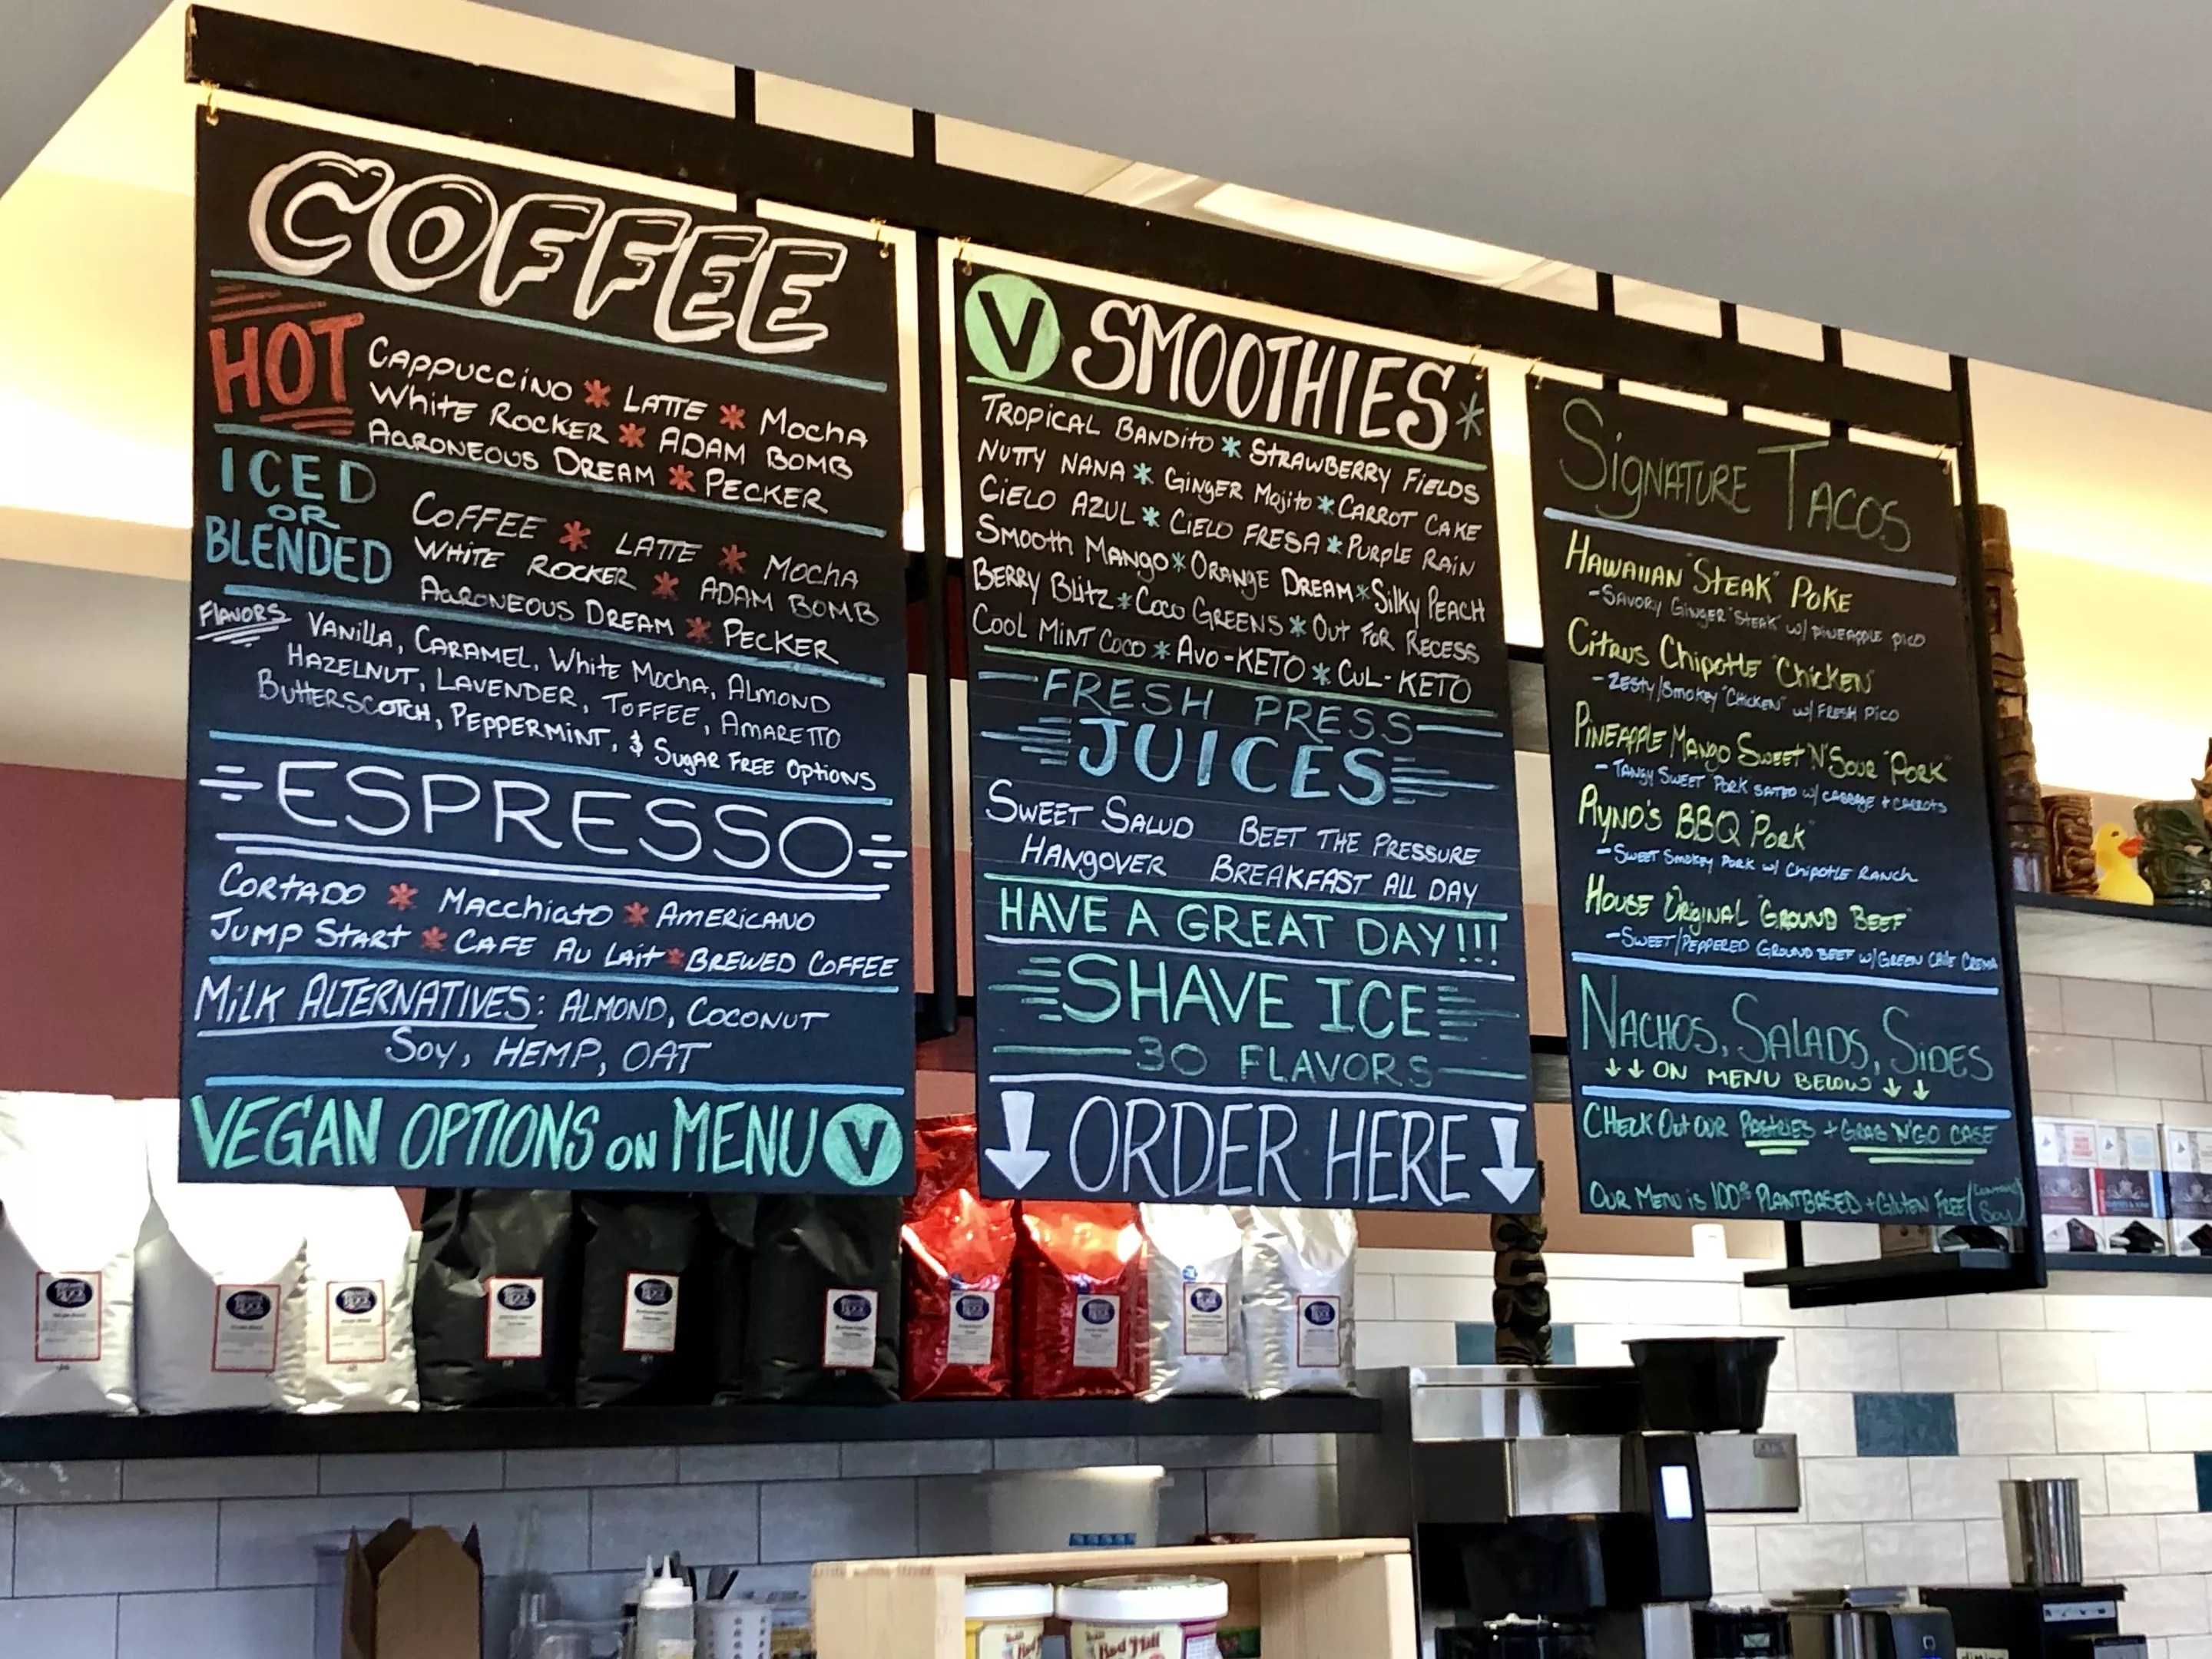 COFFEE
HOT
CAPPUCCINO * LATTE * MOCHA
WHITE ROCKER * ADAM BOMB
AARONEOUS DREAM * PECKER
ICED
OR
BLENDED
COFFEE * LATTE * MOCHA
WHITE ROCKER * ADAM BOMB
AARONEOUS DREAM * PECKER
FLAVORS
VANILLA, CARAMEL, WHITE MOCHA, ALMOND
HAZELNUT, LAVENDER, TOFFEE, AMARETTO
BUTTERSCOTCH, PEPPERMINT, & SUGAR FREE OPTIONS
ESPRESSO
CORTADO * MACCHIATO * AMERICANO
JUMP START * CAFE AU LAIT * BREWED COFFEE
MILK ALTERNATIVES: ALMOND, COCONUT
SOY, HEMP, OAT
VEGAN OPTIONS ON MENU V
V SMOOTHIES *
TROPICAL BANDITO * STRAWBERRY FIELDS
NUTTY NANA * GINGER MOJITO * CARROT CAKE
CIELO AZUL * CIELO FRESA * PURPLE RAIN
SMOOTH MANGO * ORANGE DREAM * SILKY PEACH
BERRY BLITZ * COCO GREENS * OUT FOR RECESS
COOL MINT COCO * AVO-KETO * CUL-KETO
FRESH PRESS
JUICES
SWEET SALUD BEET THE PRESSURE
HANGOVER BREAKFAST ALL DAY
HAVE A GREAT DAY!!!
SHAVE ICE
30 FLAVORS
ORDER HERE
SIGNATURE TACOS
HAWAIIAN "STEAK" POKE
- SAVORY GINGER "STEAK" W/ PINEAPPLE PICO
CITRUS CHIPOTLE "CHICKEN"
- ZESTY/SMOKEY "CHICKEN" W/ FRESH PICO
PINEAPPLE MANGO SWEET 'N' SOUR "PORK"
- TANGY SWEET PORK SATED W/ CABBAGE + CARROTS
RYNO'S BBQ "PORK"
- SWEET SMOKEY PORK W/ CHIPOTLE RANCH
HOUSE ORIGINAL "GROUND BEEF"
- SWEET/PEPPERED GROUND BEEF W/ GREEN CHILE CREMA
NACHOS, SALADS, SIDES
↓↓ ON MENU BELOW ↓↓
CHECK OUT OUR PASTRIES + GRAB 'N' GO CASE
OUR MENU IS 100% PLANTBASED + GLUTEN FREE (CONTAINS SOY)
Red Mill
Red Mill